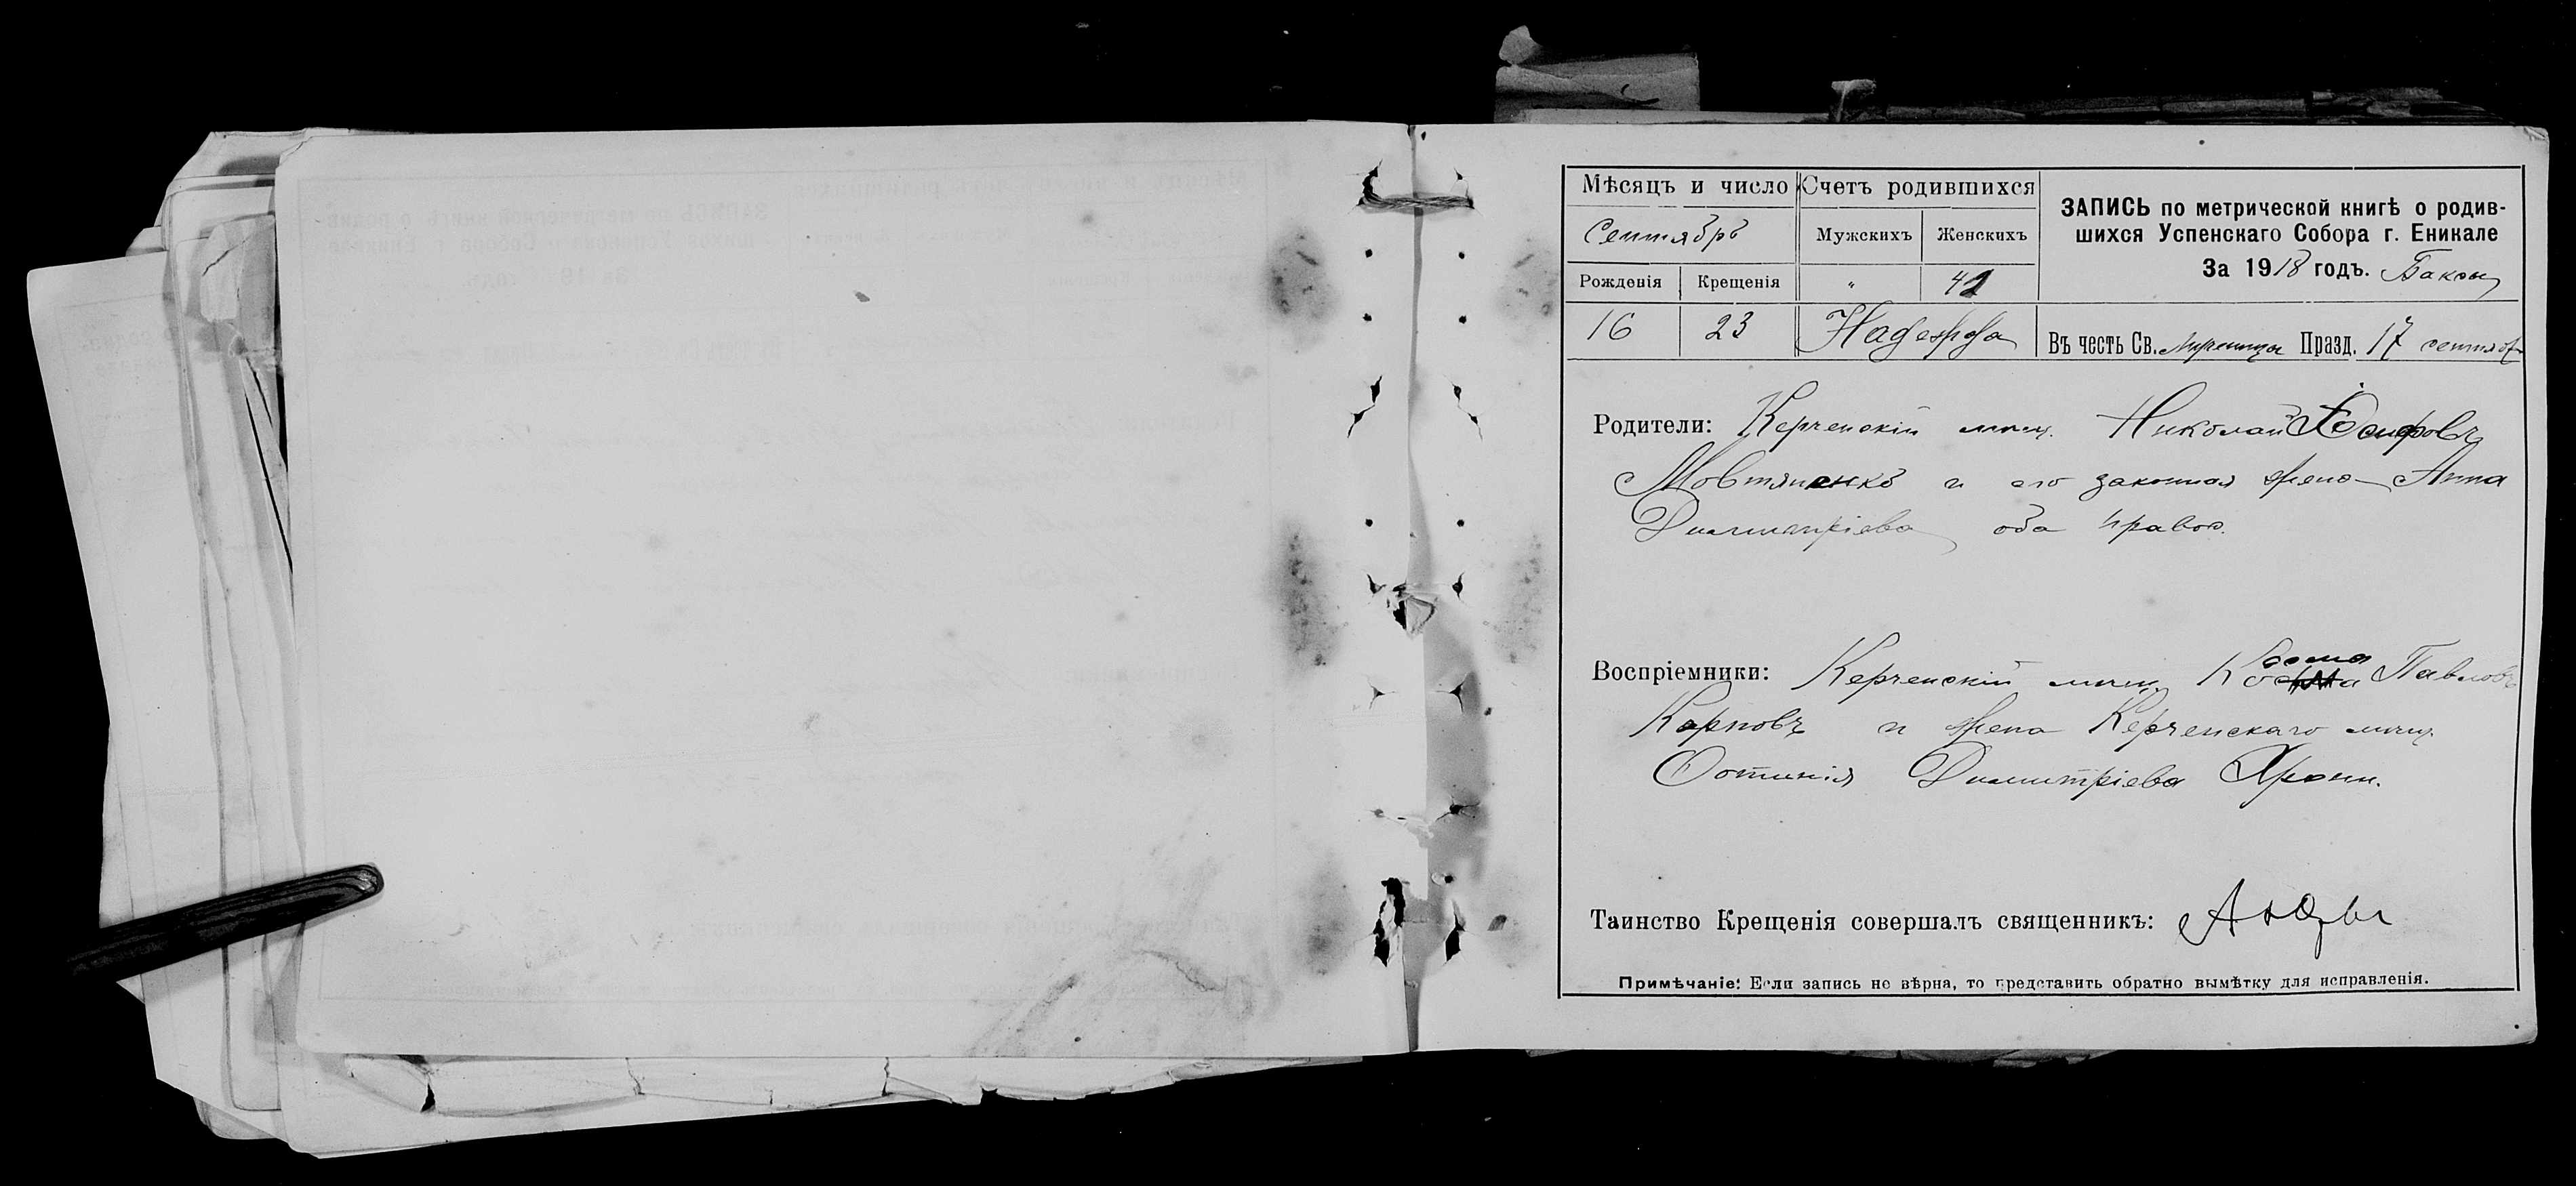 Мѣсяцъ и число Счетъ родившихся
ЗАПИСЬ по метрической книгѣ о родив-
шихся Успенскаго Собора г. Еникале
За 1918 годъ. Баксы
Сентябрь Мужскихъ Женскихъ
Рожденія Крещенія " 42
16 23 Надежда Въ честь Св. мученицы Празд. 17 сентяб.
Родители: Керченскій мѣщ. Николай Іосифовъ
Мовтяненко и его законная жена Анна
Димитріева оба правос.
Воспріемники: Керченскій мѣщ. Косма Павловъ
Карповъ и жена Керченскаго мѣщ.
Фотинія Димитріева
Таинство Крещенія совершалъ священникъ:
Примѣчаніе: Если запись не вѣрна, то представить обратно вымѣтку для исправленія.